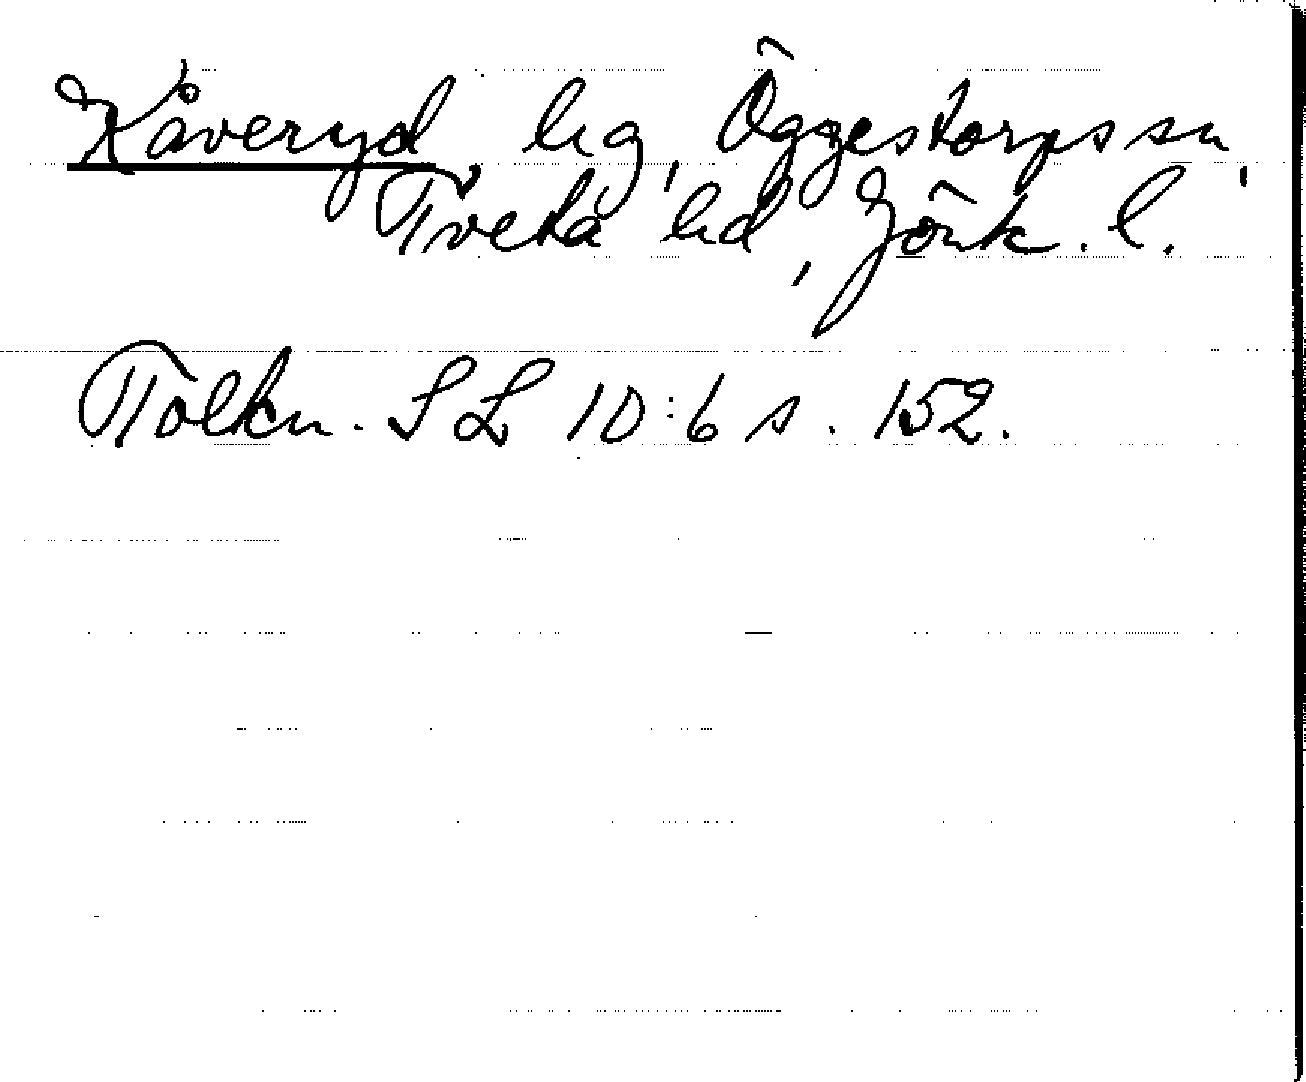 Kåveryd hg, Öggestorps sn,
Tveta hd, Jönk. l.
Tolkn. SL 10:6 s. 152.